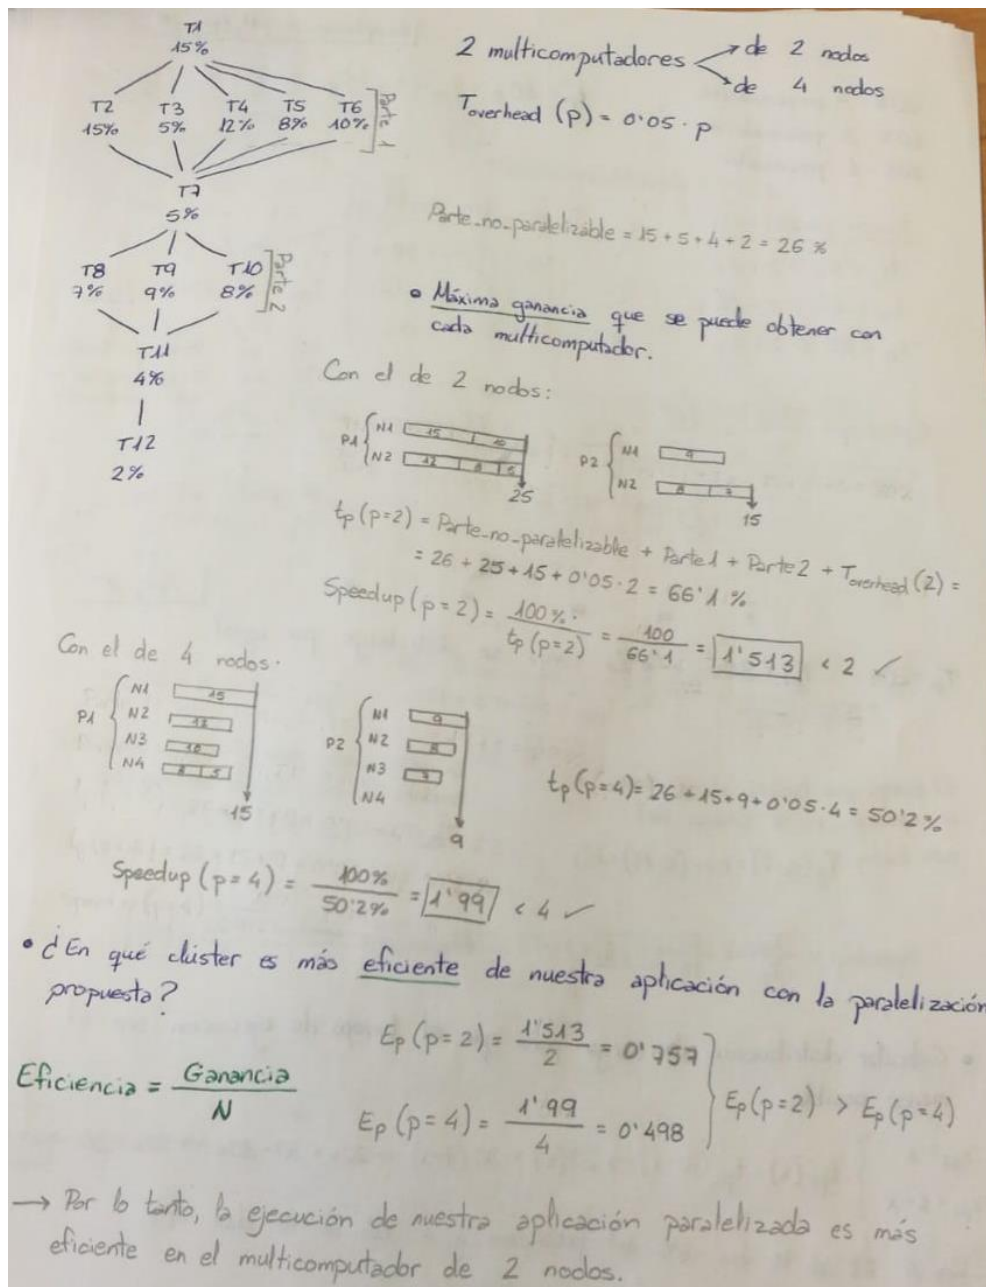 T1
15%
T2 T3 T4 T5 T6
15% 5% 12% 8% 10%
Parte 1
T7
5%
T8 T9 T10
7% 9% 8%
Parte 2
T11
4%
T12
2%
2 multicomputadores
de 2 nodos
de 4 nodos
Toverhead (p) = 0'05 · p
Parte_no_paralelizable = 15 + 5 + 4 + 2 = 26 %
• Máxima ganancia que se puede obtener con
cada multicomputador.
Con el de 2 nodos:
P1 { N1 15 10
N2 12 8 5
25
P2 { N1 9
N2 8 7
15
tp (p=2) = Parte_no_paralelizable + Parte1 + Parte2 + Toverhead (2) =
= 26 + 25 + 15 + 0'05 · 2 = 66'1 %
Speedup (p = 2) = 100% / tp (p=2) = 100 / 66'1 = 1'513 < 2 ✓
Con el de 4 nodos.
P1 { N1 15
N2 12
N3 10
N4 8 5
15
P2 { N1 9
N2 8
N3 7
N4
9
tp (p=4) = 26 + 15 + 9 + 0'05 · 4 = 50'2 %
Speedup (p = 4) = 100% / 50'2% = 1'99 < 4 ✓
• ¿En qué clúster es más eficiente de nuestra aplicación con la paralelización
propuesta?
Ep (p=2) = 1'513 / 2 = 0'757
Eficiencia = Ganancia / N
Ep (p=4) = 1'99 / 4 = 0'498
Ep (p=2) > Ep (p=4)
→ Por lo tanto, la ejecución de nuestra aplicación paralelizada es más
eficiente en el multicomputador de 2 nodos.